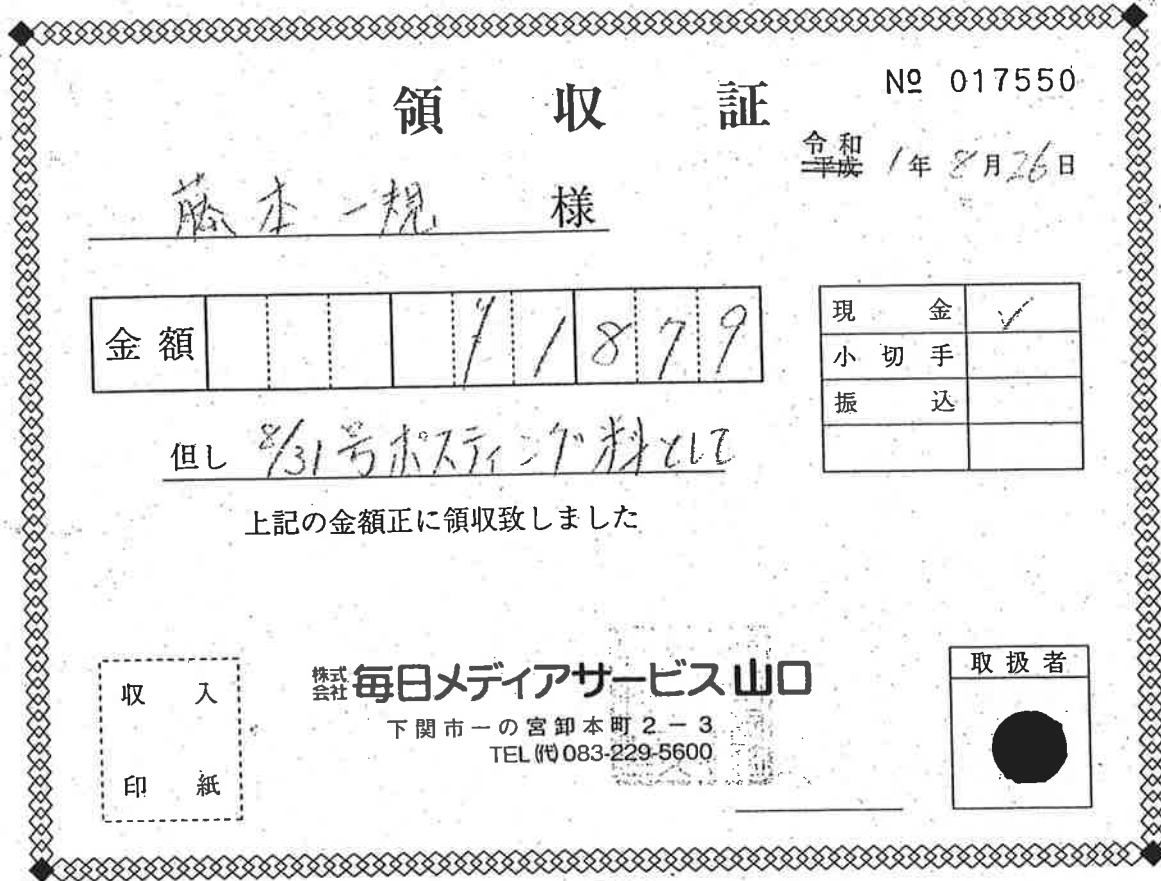 領収証
№ 017550
令和
平成 1年 8月26日
藤本一規 様
金額 ¥1879
現金 ✓
小切手
振込
但し 8/31号ポスティング料として
上記の金額正に領収致しました
収入
印紙
株式会社 毎日メディアサービス山口
下関市一の宮卸本町2-3
TEL(代)083-229-5600
取扱者